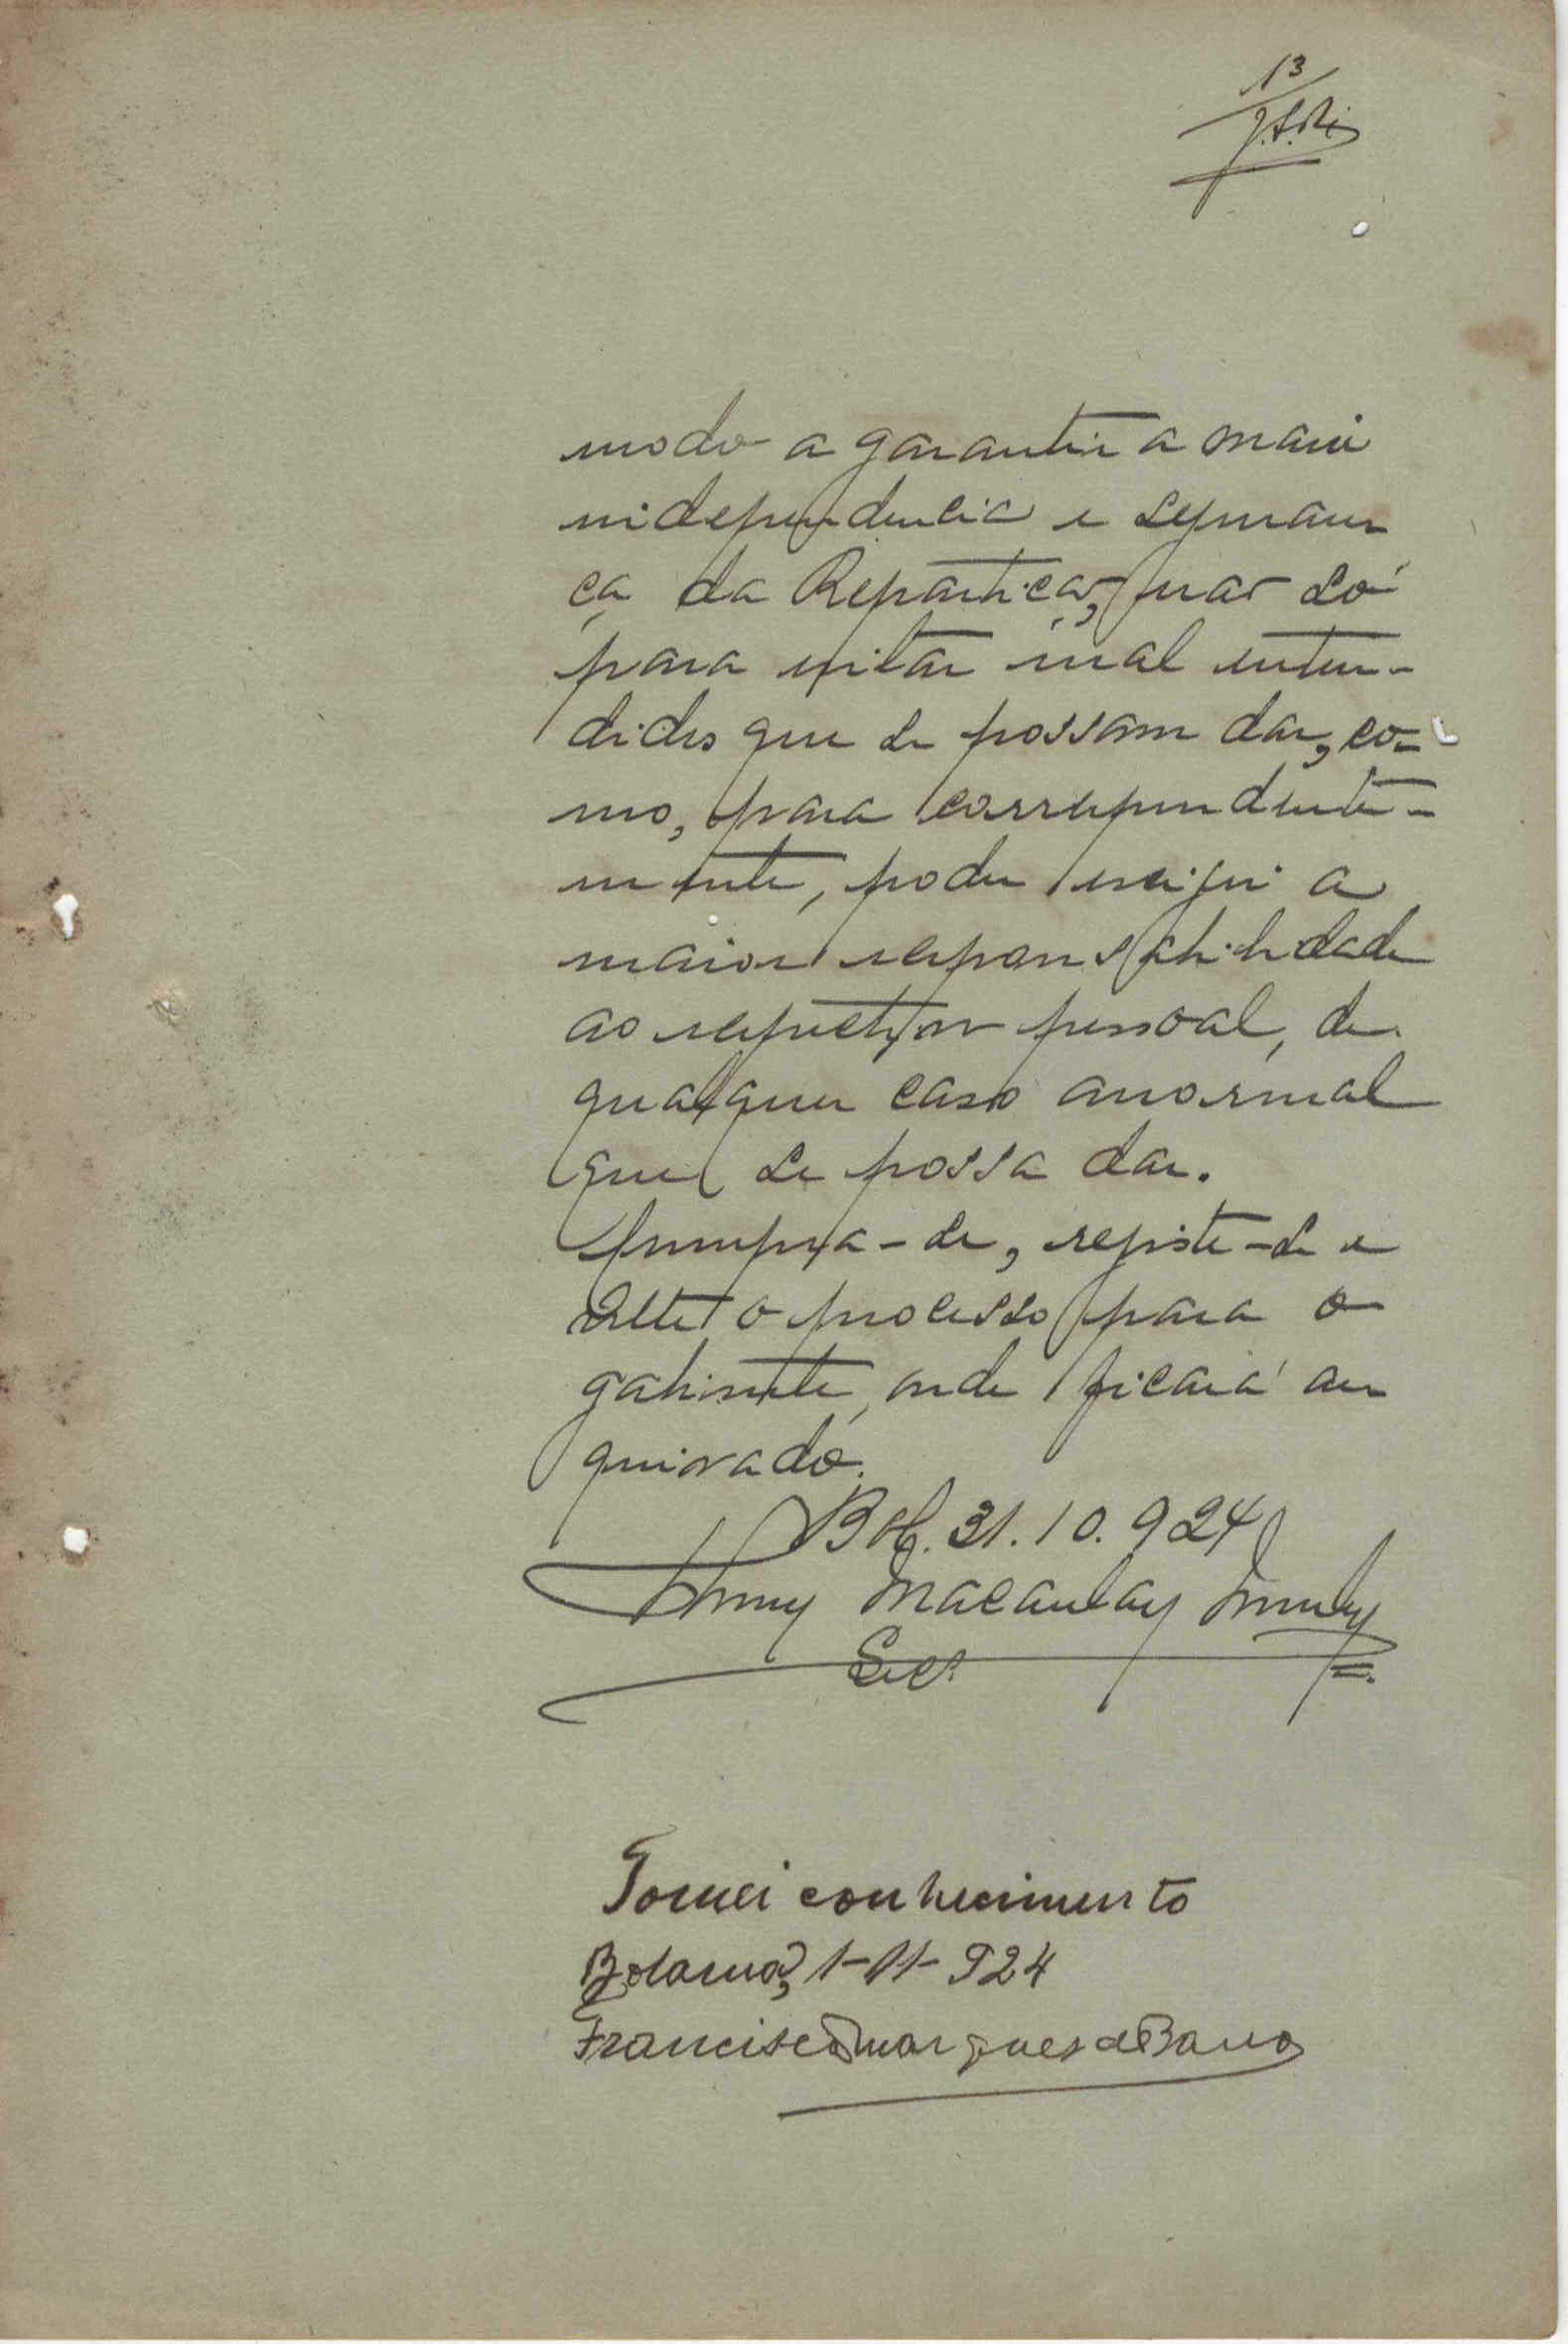 13
modo a garantir a maior
independencia e seguran
ça da Repartição, não só
para evitar mal enten-
didos que se possam dar, co-
mo, para correspondente-
mente, poder exigir a
maior responsabilidade
ao respectivo pessoal, de
qualquer caso anormal
que se possa dar.
Cumpra-se, registe-se e
volte o processo para o
gabinete, onde ficará ar
quivado.
Bol. 31.10.924
Macaulay
Sec.
Tomei conhecimento
Bolama, 1-11-924
Francisco Marques de Barros